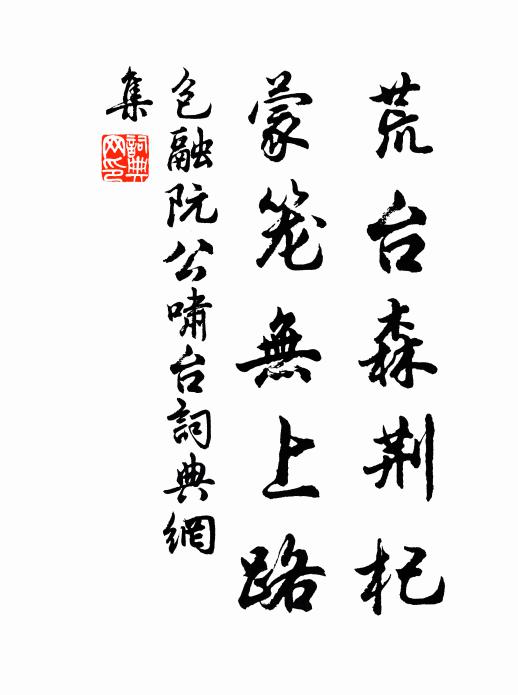 荒台森荆杞
蒙笼無上路
包融阮公嘯台詞典網
集
詞典
网印